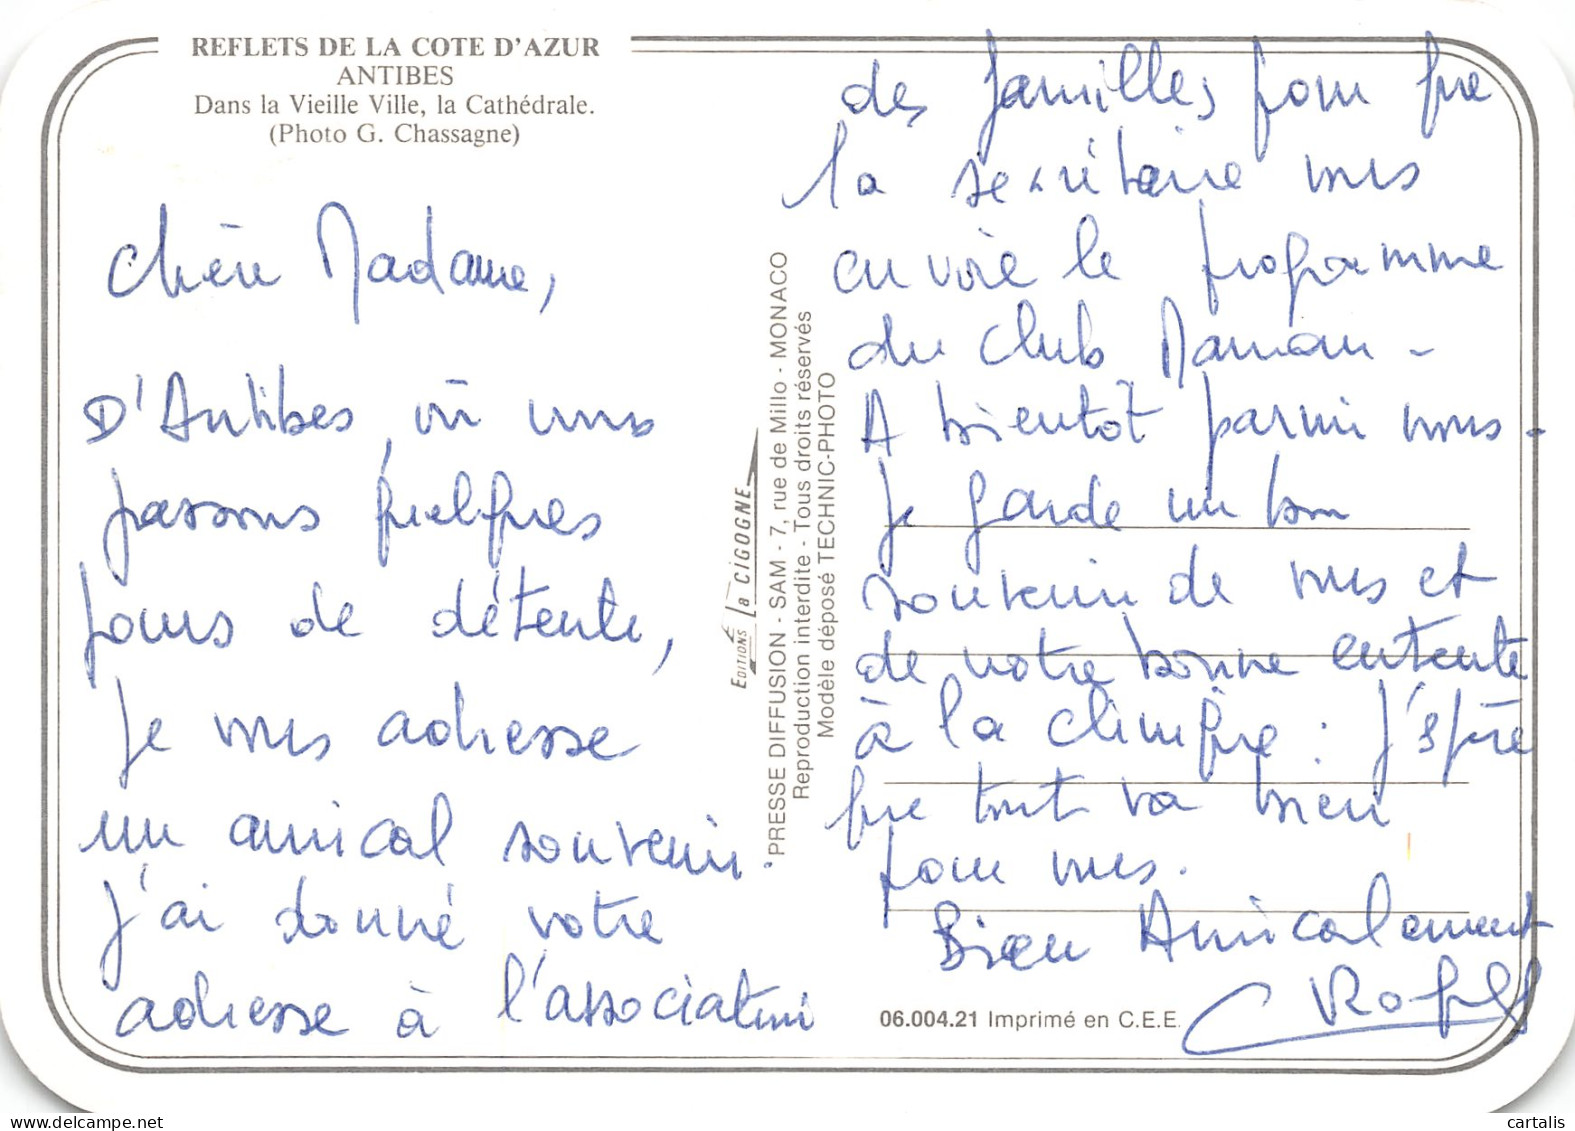 REFLETS DE LA COTE D'AZUR
ANTIBES
Dans la Vieille Ville, la Cathédrale.
(Photo G. Chassagne)
Chère Madame,
D'Antibes, où nous
passons quelques
jours de détente,
je vous adresse
un amical souvenir.
J'ai donné votre
adresse à l'association
des familles pour que
la secrétaire vous
envoie le programme
du Club Maman -
A bientôt parmi nous -
Je garde un bon
souvenir de vous et
de notre bonne entente
à la clinique : j'espère
que tout va bien
pour vous.
Bien Amicalement
EDITIONS La CIGOGNE
PRESSE DIFFUSION - SAM - 7, rue de Millo - MONACO
Reproduction interdite - Tous droits réservés
Modèle déposé TECHNIC-PHOTO
06.004.21 Imprimé en C.E.E.
delcampe.net
cartalis